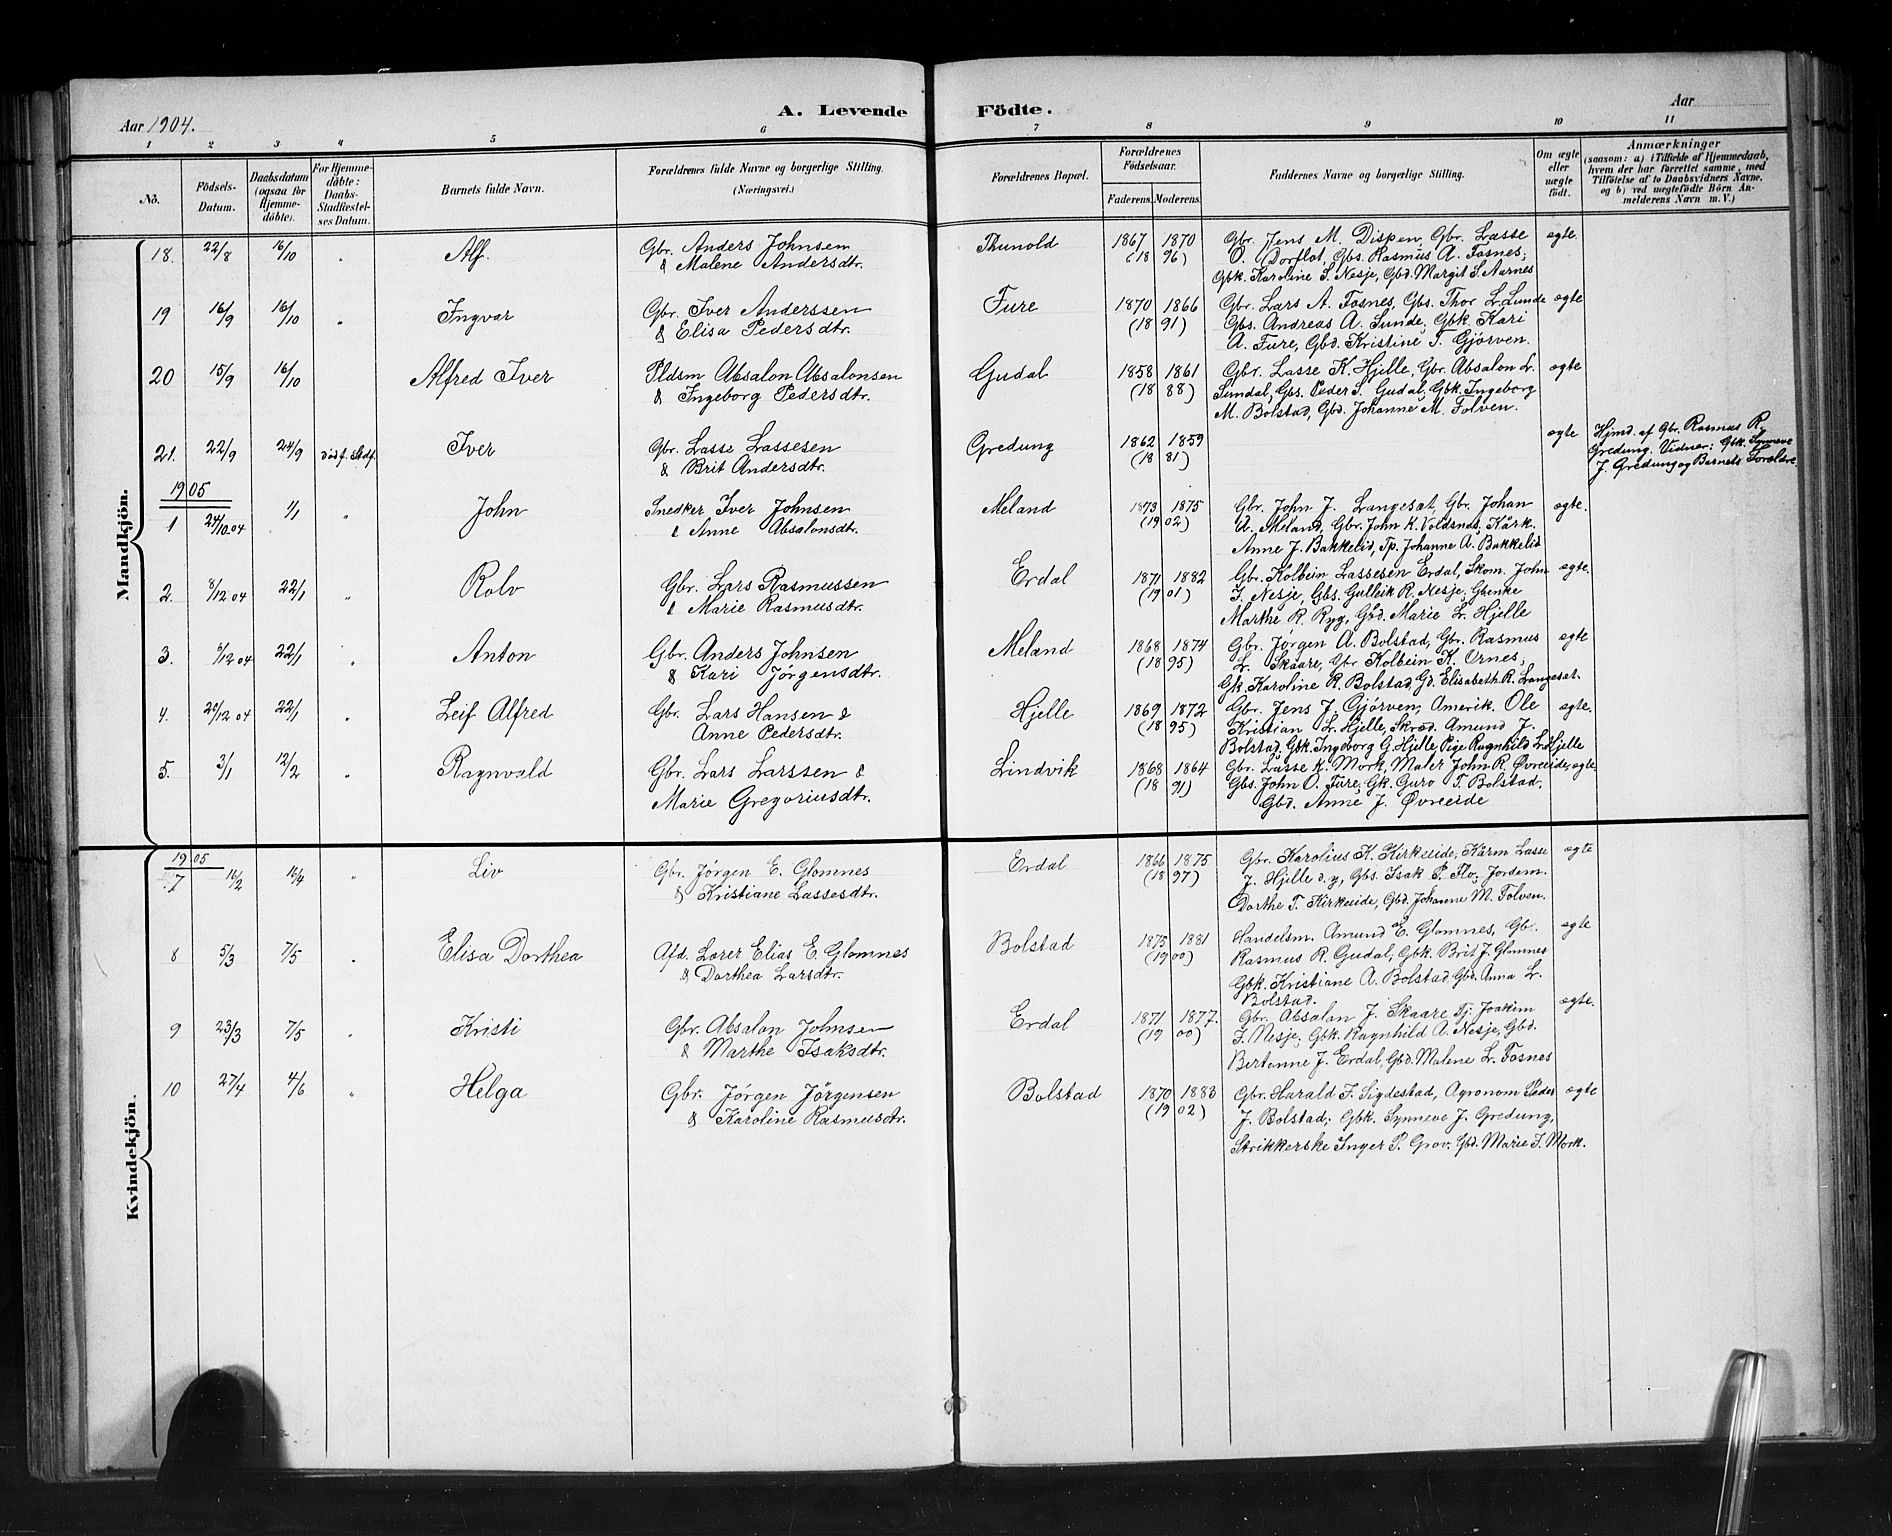 A. Levende Födte.
Aar 1904. Aar
1 2 3 4 5 6 7 8 9 10 11
No. Födsels-Datum. Daabsdatum (ogsaa for Hjemmedöbte). For Hjemmedöbte: Daabs-Stadfæstelses Datum. Barnets fulde Navn. Forældrenes fulde Navne og borgerlige Stilling. (Næringsvei.) Forældrenes Bopæl. Forældrenes Födselsaar. Faderens Moderens Faddernes Navne og borgerlige Stilling. Om ægte eller uægte födt. Anmærkninger (saasom: a) i Tilfælde af Hjemmedaab, hvem der har forrettet samme, med Tilföielse af to Daabsvidners Navne, og b) ved uægtefödte Börn Anmelderens Navn m. V.)
Mandkjön.
18. 22/8 16/10 " Alf. Gbr. Anders Johnsen Thunold 1867 1870 Gbr. Jens M. Dispen, Gbr. Lasse ægte.
& Malene Andersdtr. (1896) O. Dorflot, Gbs. Rasmus A. Fosnes,
Gbk. Karoline S. Nesje, Gbd. Margit S. Aarnes
19 16/9 16/10 " Ingvar Gbr. Iver Anderssen Fure 1870 1866 Gbr. Lars A. Fosnes, Gbs. Thor L. Lunde ægte
& Elisa Pedersdtr. (1891) Gbs. Andreas A. Sunde, Gbk. Kari
A. Fure, Gbd. Kristine T. Gjörven.
20 15/9 16/10 Alfred Iver Pldsm Absalon Absalonsen Gudal 1858 1861 Gbr. Lasse K. Hjelle, Gbr. Absalon L. ægte
& Ingeborg Pedersdtr. (1888) Sundal, Gbs. Peder S. Gudal, Gbk. Ingeborg
M. Bolstad, Gbd. Johanne M. Folven.
21. 22/9 24/9 död f. Stdf. Iver Gbr. Lasse Lassesen Gredung 1862 1859 ægte Hjmd. af Gbr. Rasmus R.
& Brit Andersdtr. (1881) Gredung. Vidner: Gbk. Synneve
J. Gredung og Barnets Forældre.
1905
1 24/10.04 1/1 " John Snedker Iver Johnsen Meland 1873 1875 Gbr. John J. Langesæt, Gbr. Johan ægte.
& Anne Absalonsdtr. (1902) A. Meland, Gbr. John K. Voldsnes, Kårk.
Anne J. Bakkelid, Tp. Johanne A. Bakkelid
2. 8/12 04 22/1 " Rolv Gbr. Lars Rasmussen Erdal 1871 1882 Gbr. Kolbein Lassesen Erdal, Skom. John ægte.
& Marie Rasmusdtr. (1901) I. Nesje, Gbs. Gulleik R. Nesje, Gbenke
Marthe R. Ryg, Gbd. Marie L. Hjelle
3. 8/12 04 22/1 " Anton Gbr. Anders Johnsen Meland 1868 1874 Gbr. Jørgen A. Bolstad, Gbr. Rasmus ægte
& Kari Jørgensdtr. (1895) L. Skaare, Gbr Kolbein K. Ornes,
Gk. Karoline R. Bolstad, Gd. Elisabeth R. Langesæt.
4. 20/12 04 22/1 " Leif Alfred Gbr. Lars Hansen & Hjelle 1869 1872 Gbr. Jens J. Gjörven, Amerik. Ole ægte.
Anne Pedersdtr. (1895) Kristian L. Hjelle, Skræd. Amund J.
Bolstad, Gbk. Ingeborg G. Hjelle, Pige Ragnhild L. Hjelle
5. 3/1 12/2 " Ragnvald Gbr. Lars Larssen & Lindvik 1868 1864 Gbr. Lasse K. Mork, Maler John R. Øvreeide, ægte.
Marie Gregoriusdtr. (1891) Gbs. John O. Fure, Gk. Guro T. Bolstad,
Gbd. Anne J. Øvreeide
Kvindekjön.
1905
7 16/2 16/4 " Liv Gbr. Jørgen E. Glomnes Erdal 1866 1875 Gbr. Karolius K. Kirkeeide, Kårm Lasse ægte
& Kristiane Lassesdtr. (1897) J. Hjelle d.y., Gbs. Isak P. Flo, Jordem.
Dorthe T. Kirkeeide, Gbd. Johanne M. Folven.
8 5/3 7/5 " Elisa Dorthea Afd. Lærer Elias E. Glomnes Bolstad 1875 1881 Handelsm. Amund E. Glomnes, Gbr. ægte
& Dorthea Larsdtr. (1900) Rasmus R. Gudal, Gbk. Brit J. Glomnes
Gbk. Kristiane A. Bolstad, Gbd. Anna L.
Bolstad.
9 23/3 7/5 " Kristi Gbr. Absalon Johnsen Erdal 1871 1877. Gbr. Absalon J. Skaare Tj. Joakim ægte.
& Marthe Isaksdtr. (1900) I. Nesje, Gbk. Ragnhild A. Nesje, Gbd.
Bertanne J. Erdal, Gbd. Malene L. Fosnes
10 27/4 4/6 " Helga Gbr. Jørgen Jörgensen Bolstad 1870 1883 Gbr. Harald F. Sigdestad, Agronom Peder ægte
& Karoline Rasmusdtr. (1902) J. Bolstad, Gbk. Synneve J. Gredung,
Strikkerske Inger P. Grov. Gbd. Marie I. Mork.